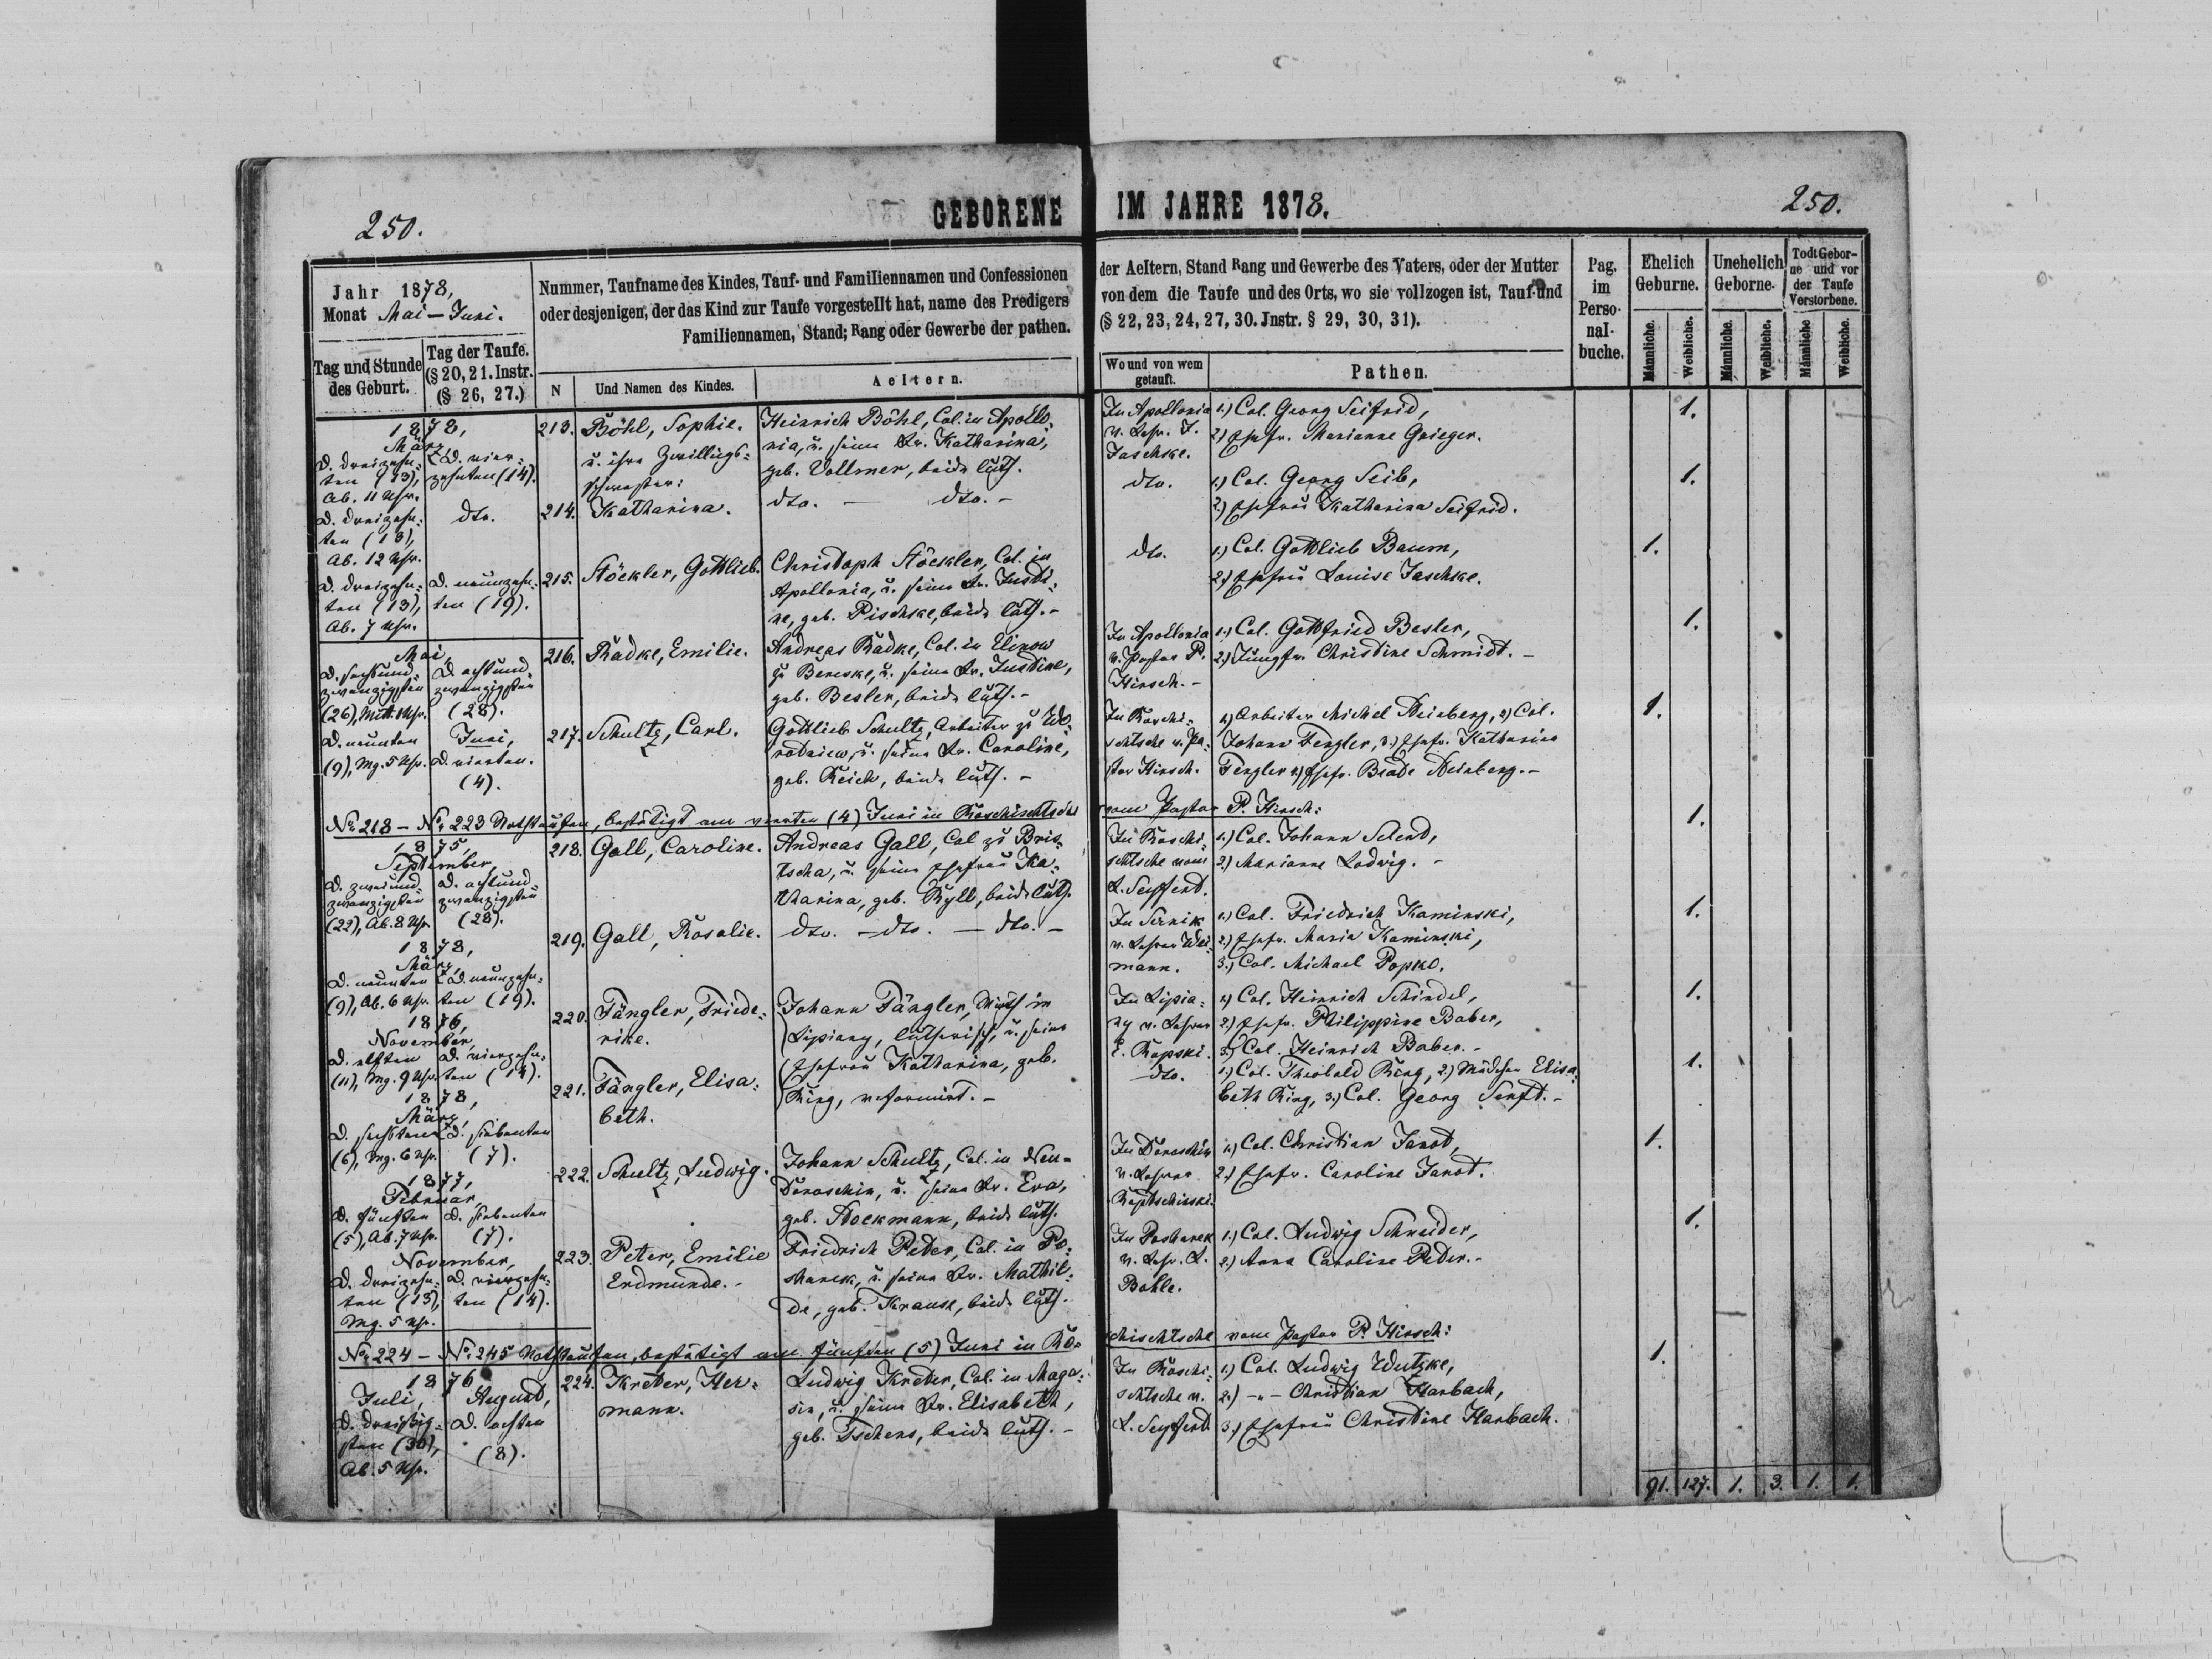 250.
GEBORENE
IM JAHRE 1878.
250.
Jahr 1878,
Monat Mai – Juni.
Tag und Stunde
des Geburt.
Tag der Taufe.
(§ 20, 21. Instr.
(§ 26, 27.)
Nummer, Taufname des Kindes, Tauf- und Familiennamen und Confessionen
oder desjenigen, der das Kind zur Taufe vorgestellt hat, name des Predigers
Familiennamen, Stand; Rang oder Gewerbe der pathen.
N
Und Namen des Kindes.
Aeltern.
der Aeltern, Stand Rang und Gewerbe des Vaters, oder der Mutter
von dem die Taufe und des Orts, wo sie vollzogen ist, Tauf-und
(§ 22, 23, 24, 27, 30. Jnstr. § 29, 30, 31).
Wo und von wem
getauft.
Pathen.
Pag.
im
Perso-
nal-
buche.
Ehelich
Geburne.
Unehelich
Geborne.
Todt Gebor-
ne und vor
der Taufe
Verstorbene.
Männliche.
Weibliche.
Männliche.
Weibliche.
Männliche
Weibliche.
1878,
März
D. dreizehn-
ten (13),
Ab. 11 Uhr.
D. vier-
zehnten (14).
213.
Böhl, Sophie.
u. ihre Zwillings-
schwester:
Heinrich Böhl, Col. in Apollo-
nia, u. seine Fr. Katharina,
geb. Vollmer, beide luth.
In Apollonia
v. Lehr. J.
Jaschke.
1.) Col. Georg Seifrid,
2.) Ehefr. Marianne Grieger.
1.
D. dreizehn-
ten (13),
Ab. 12 Uhr.
dto.
214.
Katharina.
dto. — dto. –
dto.
1.) Col. Georg Seib,
2.) Ehefrau Katharina Seifrid.
1.
D. dreizehn-
ten (13),
Ab. 7 Uhr.
D. neunzehn-
ten (19).
215.
Stöckler, Gottlieb.
Christoph Stöckler, Col. in
Apollonia, u. seine Fr. Justi-
ne, geb. Pischke, beide luth. –
dto.
1.) Col. Gottlieb Baum,
2.) Ehefrau Louise Jaschke.
1.
Mai,
D. sechsund-
zwanzigsten
(26), Mitt. 1 Uhr.
D. achtund-
zwanzigsten
(28).
216.
Radke, Emilie.
Andreas Radke, Col. in Elinow
zu Bereske, u. seine Fr. Justine,
geb. Besler, beide luth. –
In Apollonia
v. Pastor P.
Hirsch. –
1.) Col. Gottfried Besler,
2.) Jungfr. Christine Schmidt. –
1.
D. neunten
(9), Mg. 5 Uhr.
Juni,
D. vierten.
(4).
217.
Schultz, Carl.
Gottlieb Schultz, Arbeiter zu Wo-
rotniew, u. seine Fr. Caroline,
geb. Reich, beide luth. –
In Roschi-
schtsche v. Pa-
stor Hirsch.
1.) Arbeiter Michel Steinberg, 2.) Col.
Johann Fengler, 3.) Ehefr. Katharina
Fengler 4.) Ehefr. Beate Steinberg. –
1.
No 218 – No 223 Nothtaufen, bestätigt am vierten (4) Juni in Roschischtsche
vom Pastor P. Hirsch:
1875,
September,
D. zweiund-
zwanzigsten
(22), Ab. 8 Uhr.
D. achtund-
zwanzigsten
(28).
218.
Gall, Caroline.
Andreas Gall, Col. zu Bris-
tscha, u. seine Ehefrau Ka-
tharina, geb. Ryll, beide luth.
In Roschi-
schtsche vom
L. Seyferd.
1.) Col. Johann Schend,
2.) Marianne Ludwig. –
1.
1878,
März,
D. neunten
(9), Ab. 6 Uhr.
D. neunzehn-
ten (19).
219.
Gall, Rosalie.
dto. – dto. – dto. –
In Sernik
v. Lehrer Wei-
mann.
1.) Col. Friedrich Kaminski,
2.) Ehefr. Maria Kaminski,
3.) Col. Michael Popko.
1.
1876,
November,
D. elften
(11), Mg. 9 Uhr.
D. vierzehn-
ten (14).
220.
Fängler, Friede-
rike.
Johann Fängler, Wirth in
Lipiany, lutherisch, u. seine
Ehefrau Katharina, geb.
Ring, reformirt. –
In Lipia-
ny v. Lehrer
E. Rapski.
1.) Col. Heinrich Schindel,
2.) Ehefr. Philippine Baber,
3.) Col. Heinrich Baber. –
1.
1878,
März,
D. sechsten
(6), Mg. 6 Uhr.
D. siebenten
(7).
221.
Fängler, Elisa-
beth.
dto.
1.) Col. Theobald Ring, 2.) Mädchen Elisa-
beth Ring, 3.) Col. Georg Senft. –
1.
1877,
Februar,
D. fünften
(5), Ab. 7 Uhr.
D. siebenten
(7).
222.
Schultz, Ludwig.
Johann Schultz, Col. in Neu-
Doroschin, u. seine Fr. Eva,
geb. Stockmann, beide luth.
In Doroschin
v. Lehrer
Raptschinski.
1.) Col. Christian Janot,
2.) Ehefr. Caroline Janot.
1.
November,
D. dreizehn-
ten (13),
Mg. 5 Uhr.
D. vierzehn-
ten (14).
223.
Peter, Emilie
Erdmunde. –
Friedrich Peter, Col. in Po-
sharek, u. seine Fr. Mathil-
de, geb. Krause, beide luth.
In Posharek
v. Lehr. L.
Bohle.
1.) Col. Ludwig Schneider,
2.) Anna Caroline Peter. –
1.
No 224 – No 245 Nothtaufen, bestätigt am fünften (5) Juni in Ro-
schischtsche vom Pastor P. Hirsch:
1876
Juli,
D. dreißig-
sten (30),
Ab. 5 Uhr.
August,
D. achten
(8).
224.
Kreter, Her-
mann.
Ludwig Kreter, Col. in Maga-
sin, u. seine Fr. Elisabeth,
geb. Tschens, beide luth. –
In Roschi-
schtsche v.
L. Seyferd
1.) Col. Ludwig Wutzke,
2.) -„- Christian Harbach,
3.) Ehefrau Christine Harbach.
1.
91. 127. 1. 3. 1. 1.